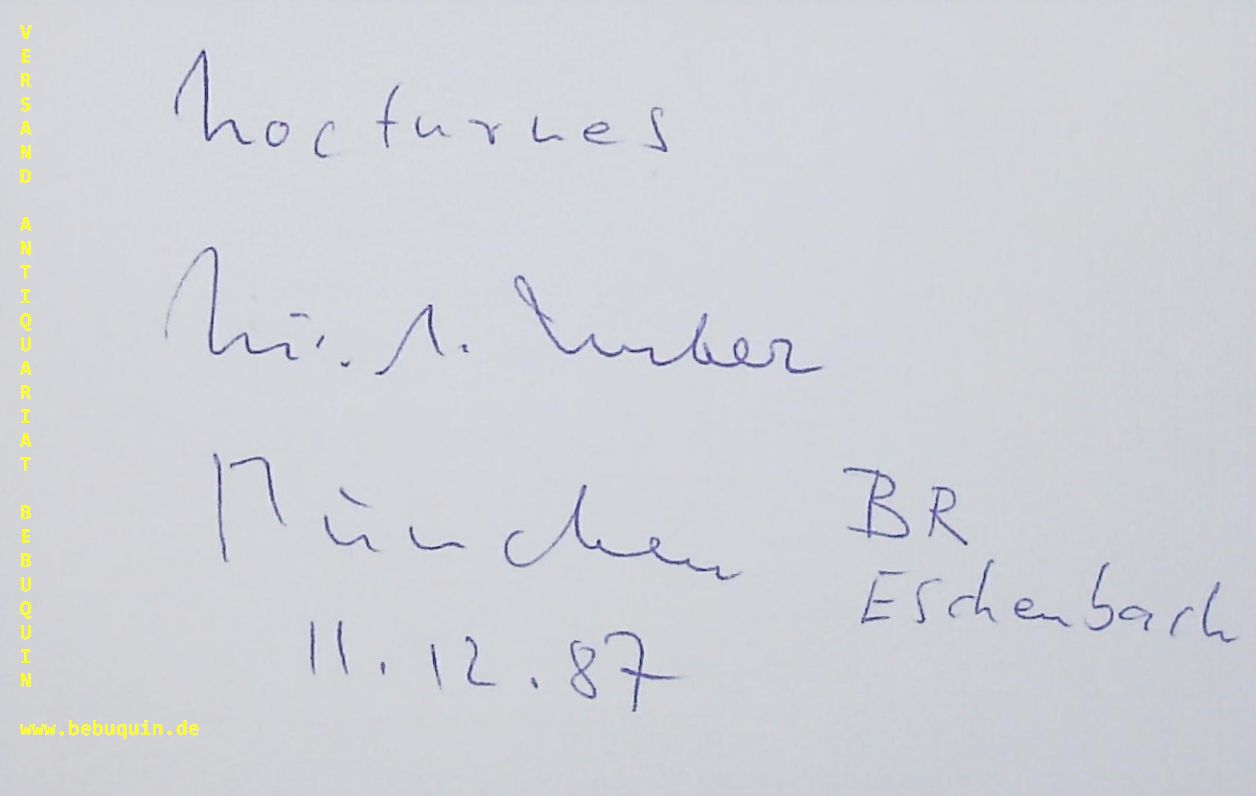 VERSAND ANTIQUARIAT BEBUQUIN
Nocturnes
Nic. A. Huber
München
BR
Eschenbach
11.12.87
www.bebuquin.de